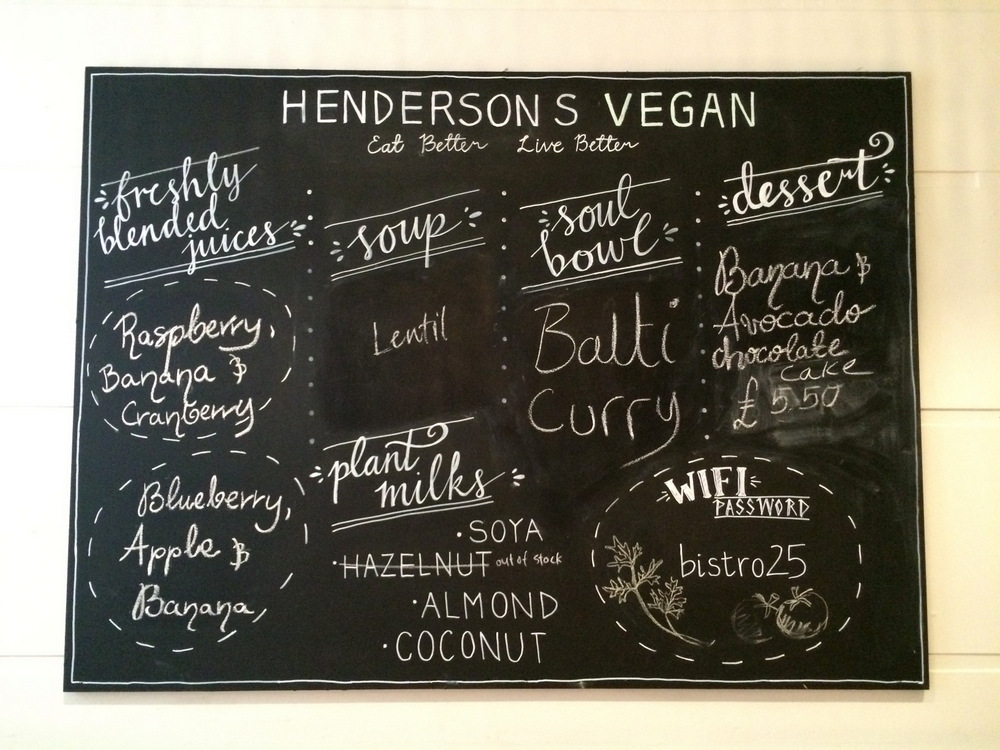 HENDERSONS VEGAN
Eat Better Live Better
freshly
blended
juices
Raspberry,
Banana &
Cranberry
Blueberry,
Apple &
Banana,
soup
Lentil
plant
milks
· SOYA
· HAZELNUT out of stock
· ALMOND
· COCONUT
soul
bowl
Balti
Curry
dessert
Banana &
Avocado
chocolate
cake
£ 5.50
WIFI
PASSWORD
bistro25